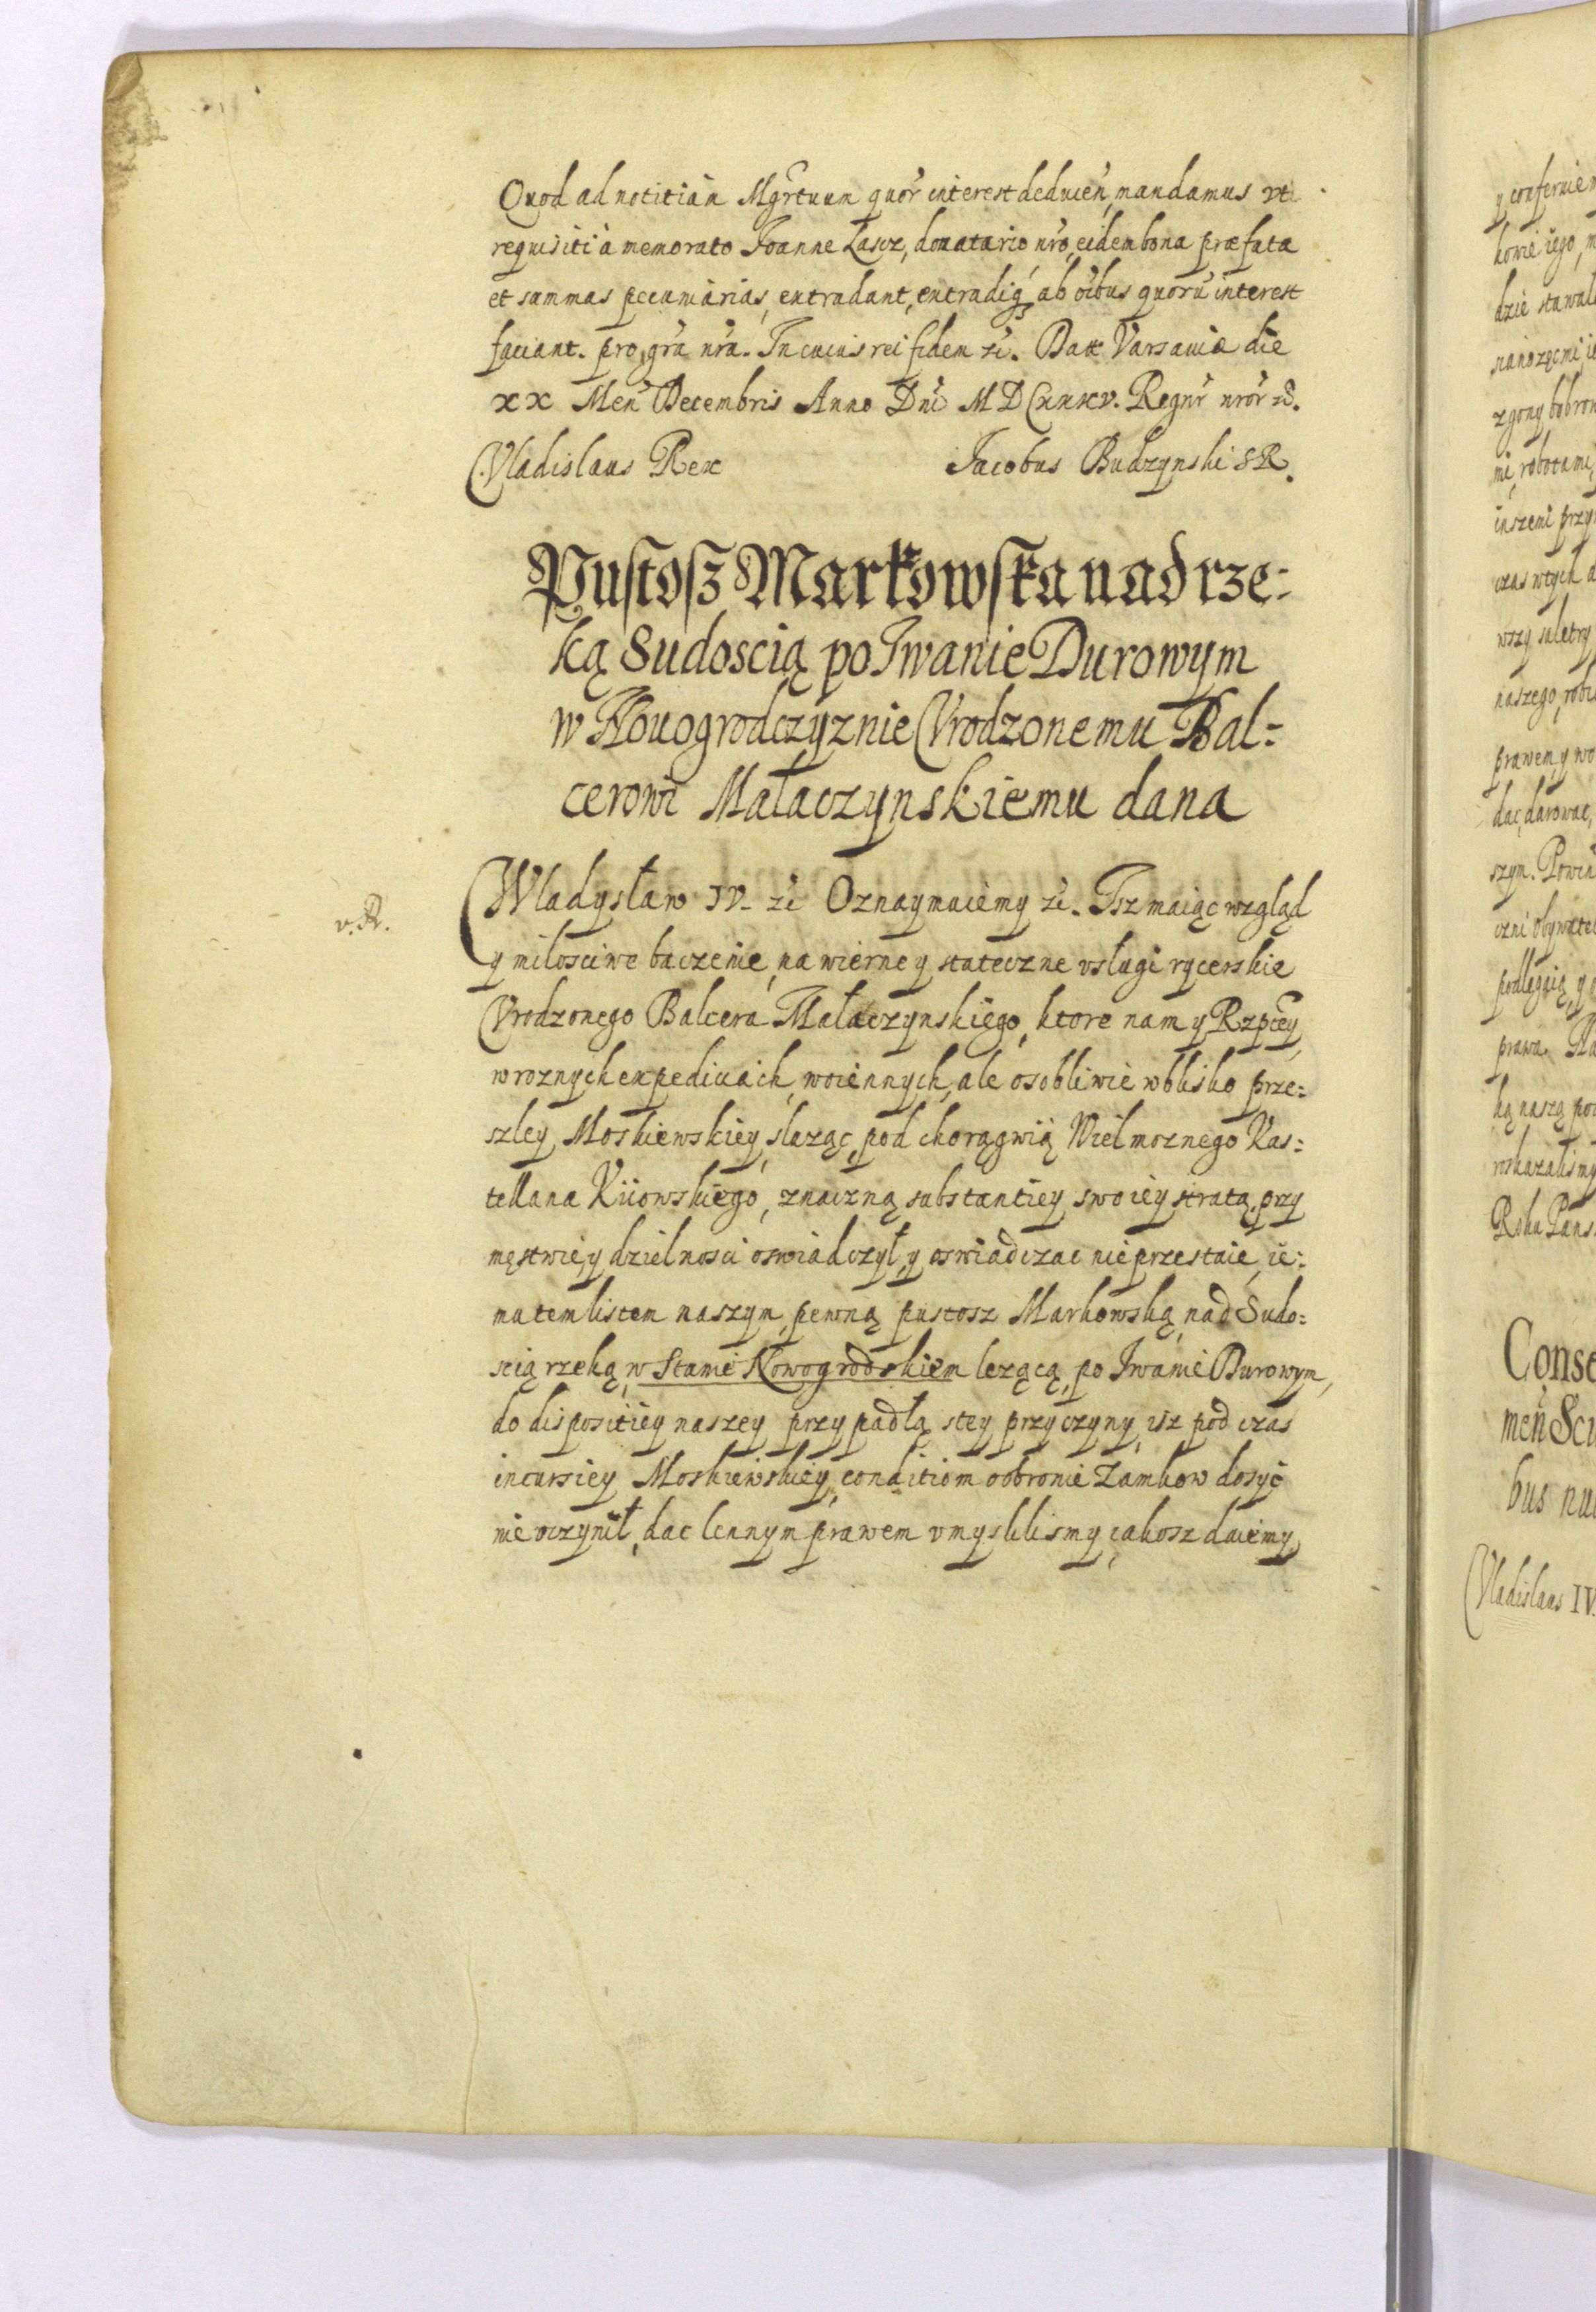 Quod ad notitiã Mgr̃tuum quor̃ interest deducen̄, mandamus vti
requisiti à memorato Joanne Łascz, donatario nr̃o, eidem bona præfata
et summas pecuniarias, extradant, extradiq́₃ ab oĩbus quorũ interest
faciant. pro gr̃a nr̃a. In cuius rei fidem &c̃. Datt Varsauiæ die
XX Men̄ Decembris Anno Dn̄i MDCXXXV. Regnr̃ nror̃ &c̃.
Vladislaus Rex Jacobus Budzynski SR.
Pustosz Markowska nad rze=
ką Sudoscią po Iwanie Durowym
w Nouogrodczyznie Vrodzonemu Bal=
cerowi Małaczynskiemu dana
v. R.
Wladysław IV. &c̃ Oznaymuiemy &c̃. Isz maiąc wzgląd
y milosciwe baczenie, na wierne y stateczne vsługi rycerskie
Vrodzonego Balcera Małaczynskiego, ktore nam y Rzptey
w roznych expediciach, woiennych, ale osobliwie w blisko prze=
szley Moskiewskiey, służąc pod chorągwią Wielmoznego Kas=
tellana Kiiowskiego, znaczną substantiey swoiey stratą, przy
męstwie, y dzielnosci oswiadczył, y oswiadczac nie przestaie, ie=
mu tem listem naszym, pewną pustosz Markowską, nad Sudo=
scią rzeką, w Stanie Nowogrodskiem lezącą, po Iwanie Durowym,
do dispositiey naszey przypadłą, s tey przyczyny, isz pod czas
incursiey Moskiewskiey, conditiom o obronie Zamkow dosyć
nie vczynił, dac lennym prawem vmyslilismy, iakosz daiemy,
y conferuie
kowie iego,
dzie stawal
zgony bobrow
mi, robotami,
inszemi przy
czas w tych
wszy saletry
naszego, robi
prawem, y wo
dac, darowac,
szyn. Powin
czni obywatel
podlegaią, y
prawa. Na
ką naszą pod
roskazalismy
Roku Pans
Conse
men̄ Scu
bus
Vladislaus IV.